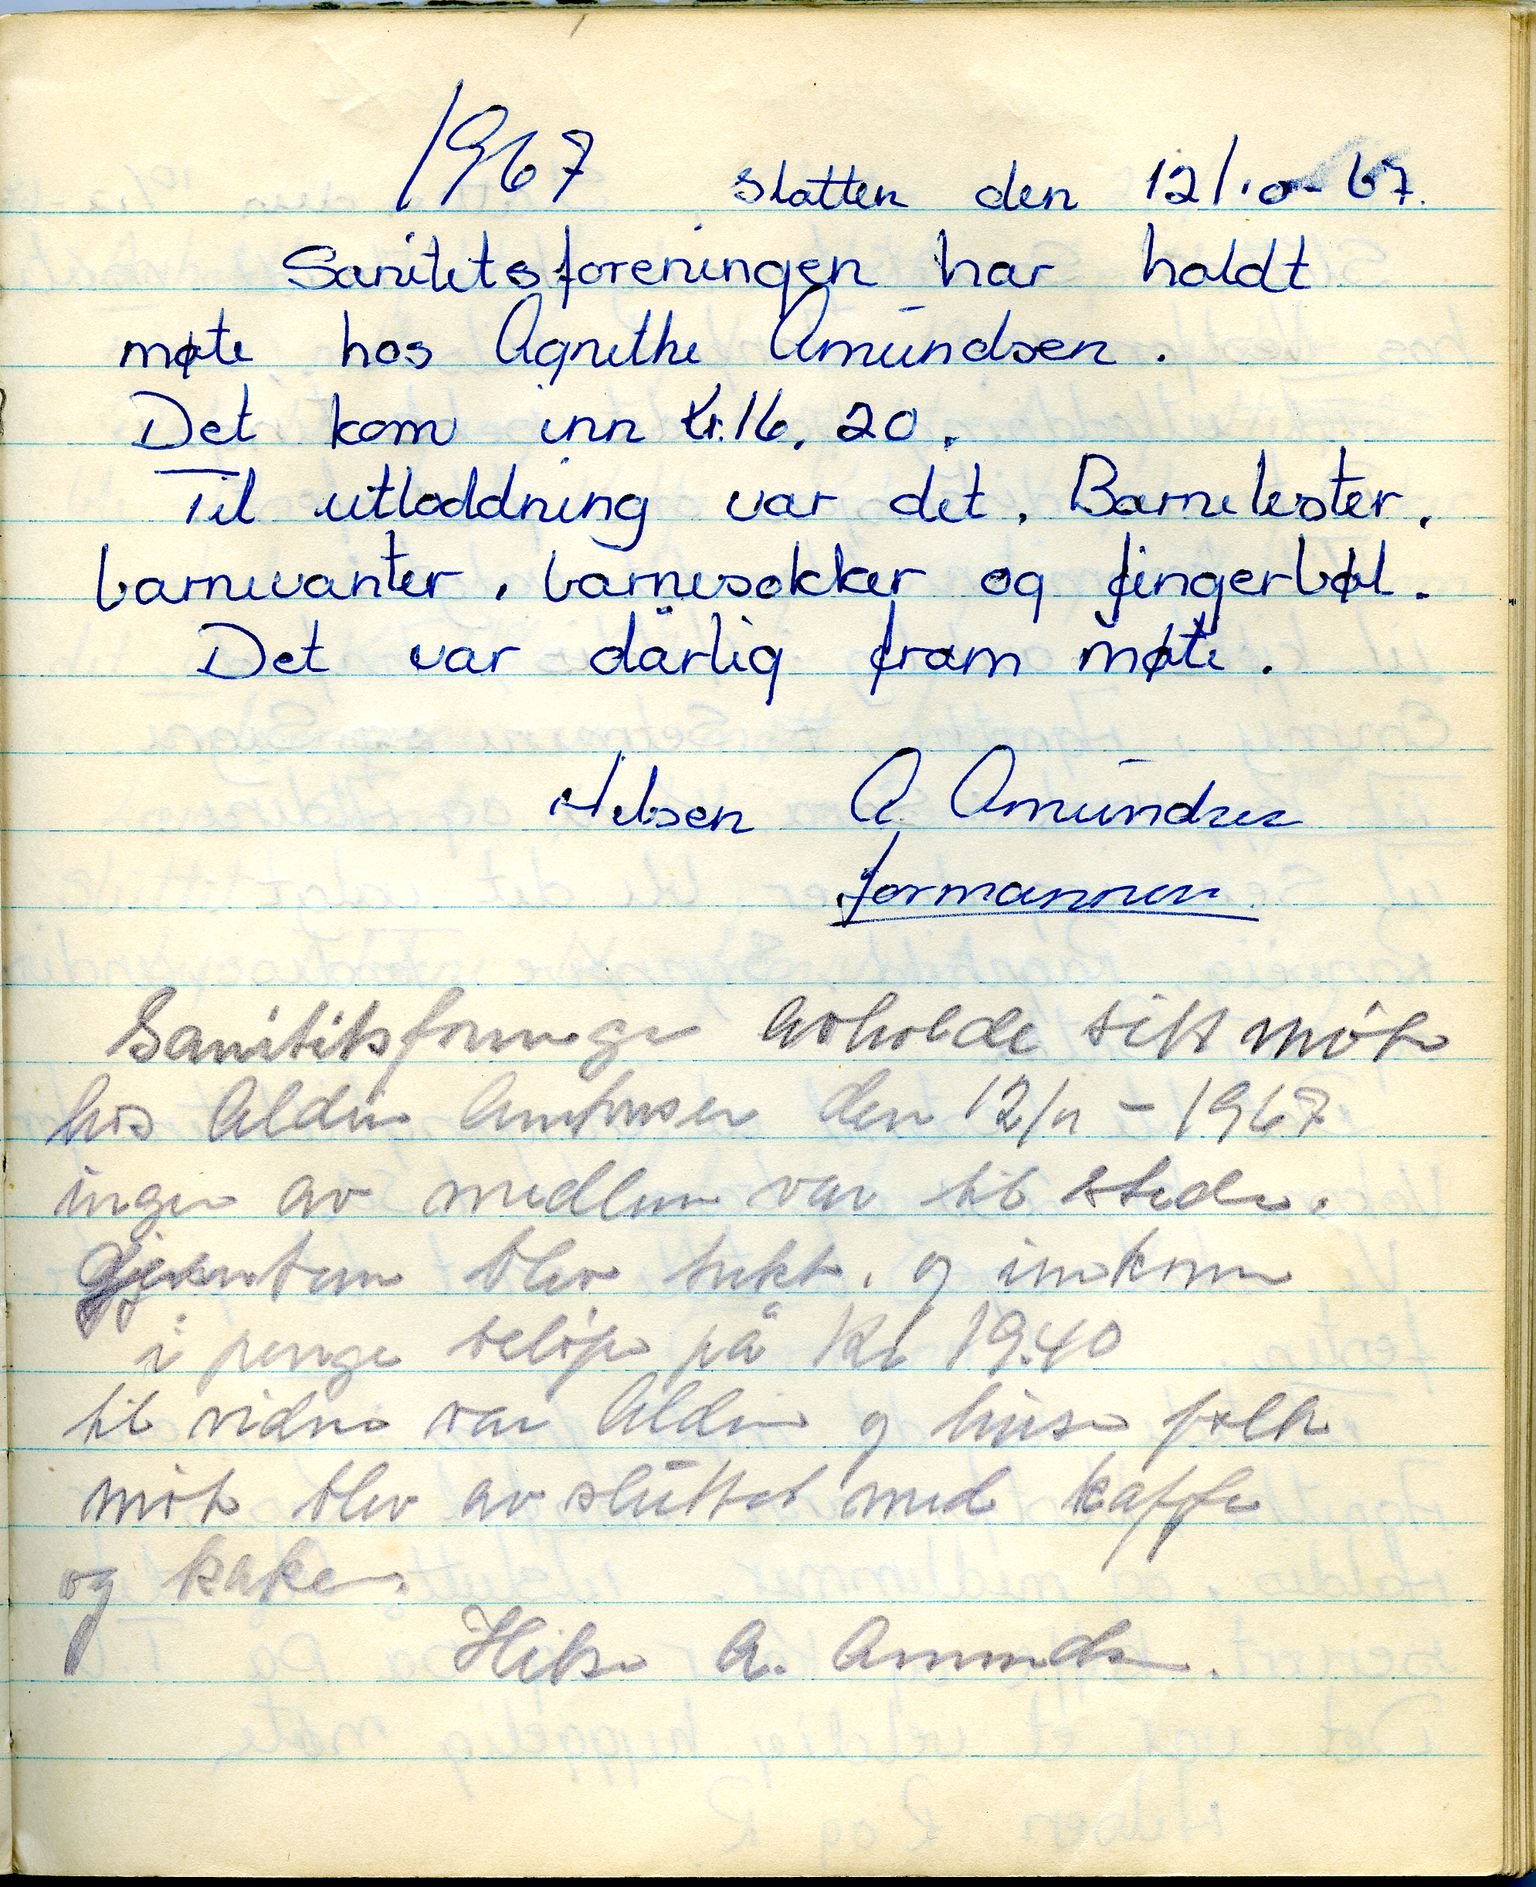 1967 Slotten den 12/10-67.
Sanitetsforeningen har holdt
møte hos Agnethe Amundsen.
Det kom inn Kr. 16.20.
Til utloddning var det. Barnelester,
barnevanter, barnesokker og fingerbøl.
Det var dårlig fram møte.
Hilsen A Amundsen
formannen
Sanititsforninge avholde sitt møte
hos Aldin den 12/11-1967
ingen av medlem var til stede.
blev trekt. og innkom
i penge beløp på Kr 19.40
til vidne var Aldin og huse folk
møte blev av sluttet med kaffe
og kaker.
Hilse A. Amundsen.